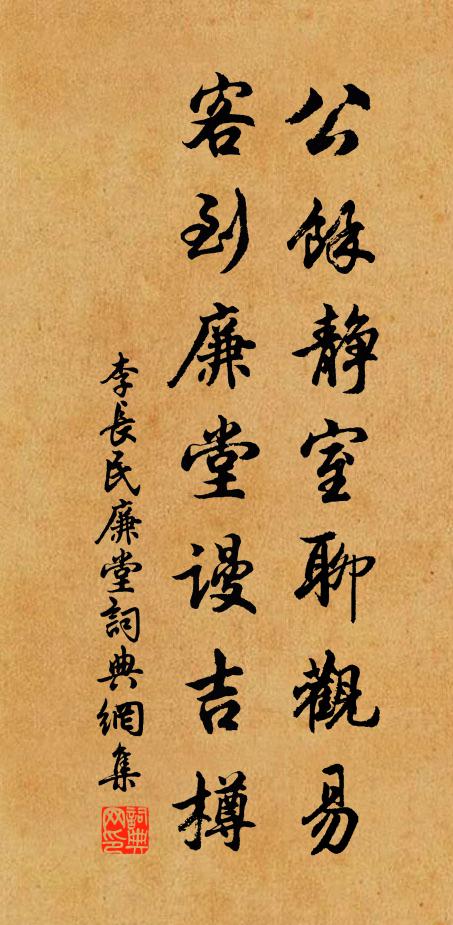 公餘静室聊觀易
客到廉堂謾吉樽
李長民廉堂詞典網集
詞典网印